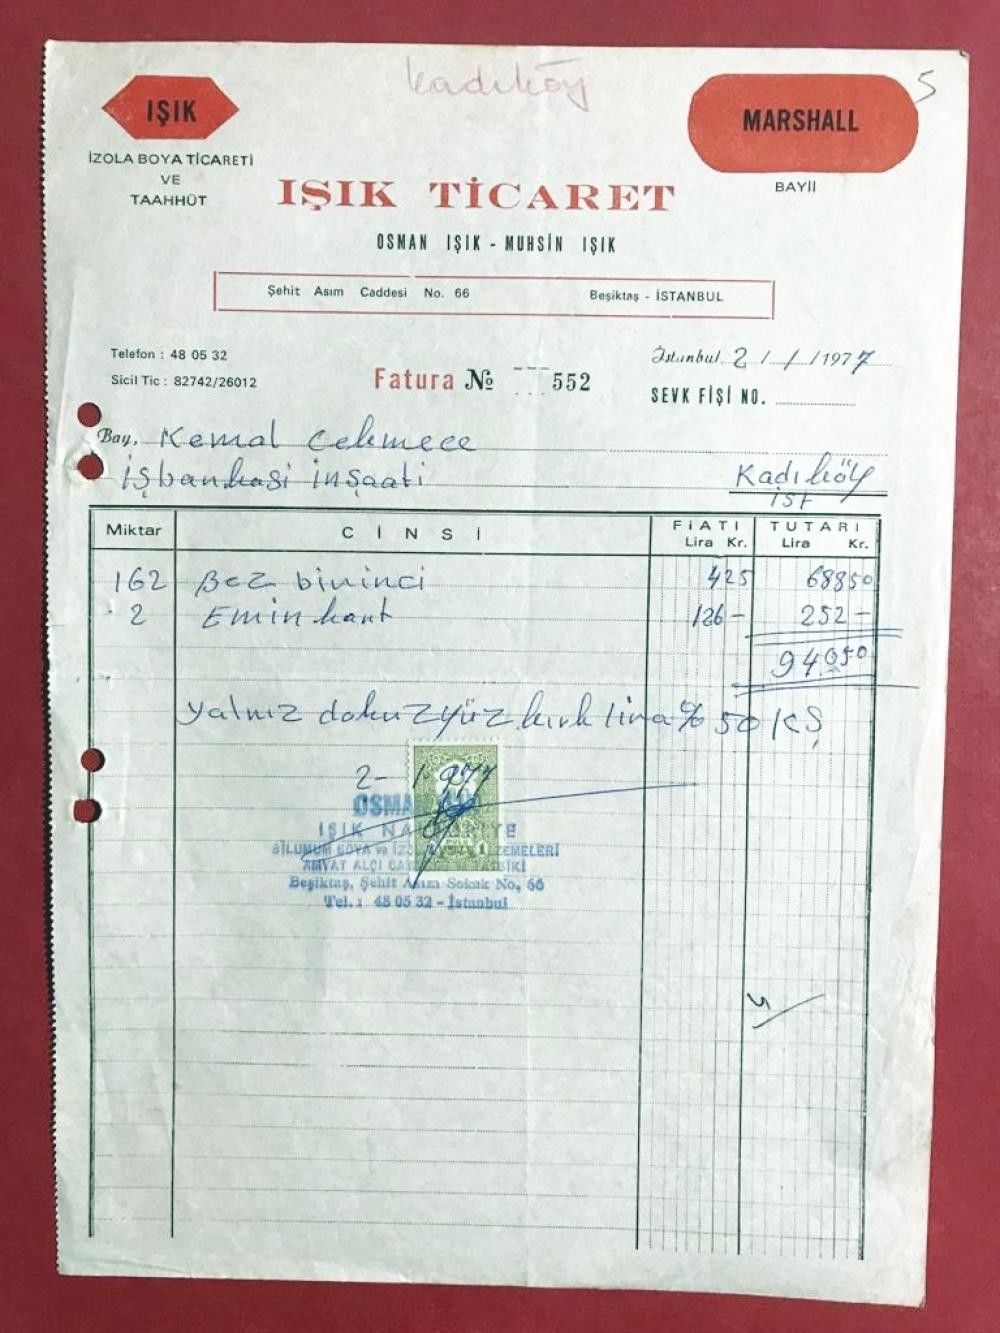 Kadıköy
5
IŞIK
MARSHALL
İZOLA BOYA TİCARETİ
VE
TAAHHÜT
BAYİİ
IŞIK TİCARET
OSMAN IŞIK - MUHSİN IŞIK
Şehit Asım Caddesi No. 66 Beşiktaş - İSTANBUL
Telefon : 48 05 32
Sicil Tic : 82742/26012
Fatura № 552
İstanbul 2 / 1 / 1977
SEVK FİŞİ NO.
Bay, Kemal Cekmece
İşbankasi inşaati Kadıköy
İST
Miktar CİNSİ FİATI TUTARI
Lira Kr. Lira Kr.
162 Bez birinci 425 68850
2 Emin kant 126- 252-
940 50
Yalnız dokuzyüz kırk lira % 50 KŞ
2- 1 977
OSMAN
IŞIK
BİLUMUM BOYA ve ZEMELERİ
ALÇI
Beşiktaş, Şehit Asım Sokak No, 66
Tel.: 48 05 32 - İstanbul
5/